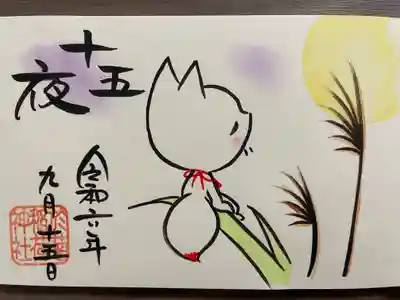 十五
夜
令和六年
九月十五日
神社